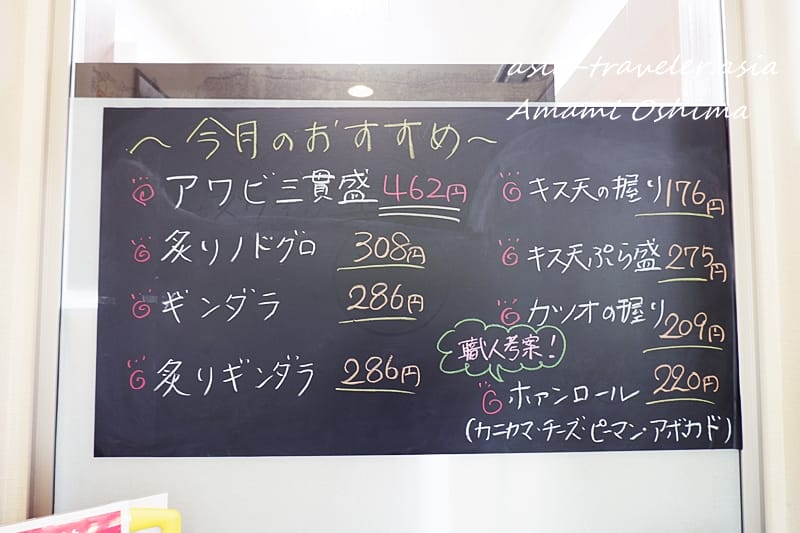 asia-traveler.asia
Amami Oshima
～今月のおすすめ～
アワビ三貫盛 462円
炙りノドグロ 308円
ギンダラ 286円
炙りギンダラ 286円
キス天の握り 176円
キス天ぷら盛 275円
カツオの握り 209円
職人考案！
ホァンロール 220円
(カニカマ・チーズ・ピーマン・アボカド)